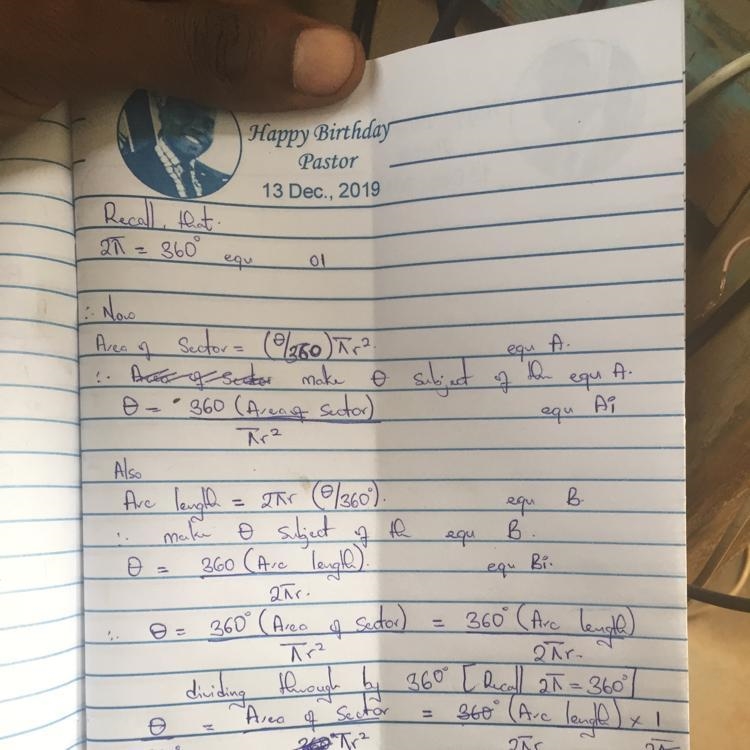 Happy Birthday
Pastor
13 Dec., 2019
Recall, that.
2π = 360° equ 01
∴ Now
Area of Sector = (θ/360)πr². equ A.
∴ Area of Sector make θ subject of the equ A.
θ = 360 (Area of Sector) equ Ai
πr²
Also
Arc length = 2πr (θ/360°). equ B
∴ make θ subject of the equ B.
θ = 360 (Arc length). equ Bi.
2πr.
∴ θ = 360° (Area of Sector) = 360° (Arc length)
πr² 2πr.
dividing through by 360° [Recall 2π = 360°]
θ = Area of Sector = 360° (Arc length) × 1
360° πr² 2πr 2π